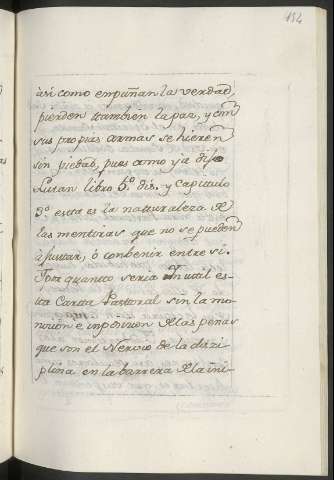 152
àsi como empuñan la verdad,
pierden tambien la paz, y con
sus propias armas se hieren
sin piedad, pues como ya dijo
libro 5º dis. y capitulo
3º esta es la naturaleza de
las mentiras que no se pueden
ajustar, ò conbenir entre si.
Por quanto seria Inutil es-
ta Carta Pastoral sin la mo-
nicion è inposicion de las penas
que son el Nervio de la dizi-
plina en la barrera de la ini-